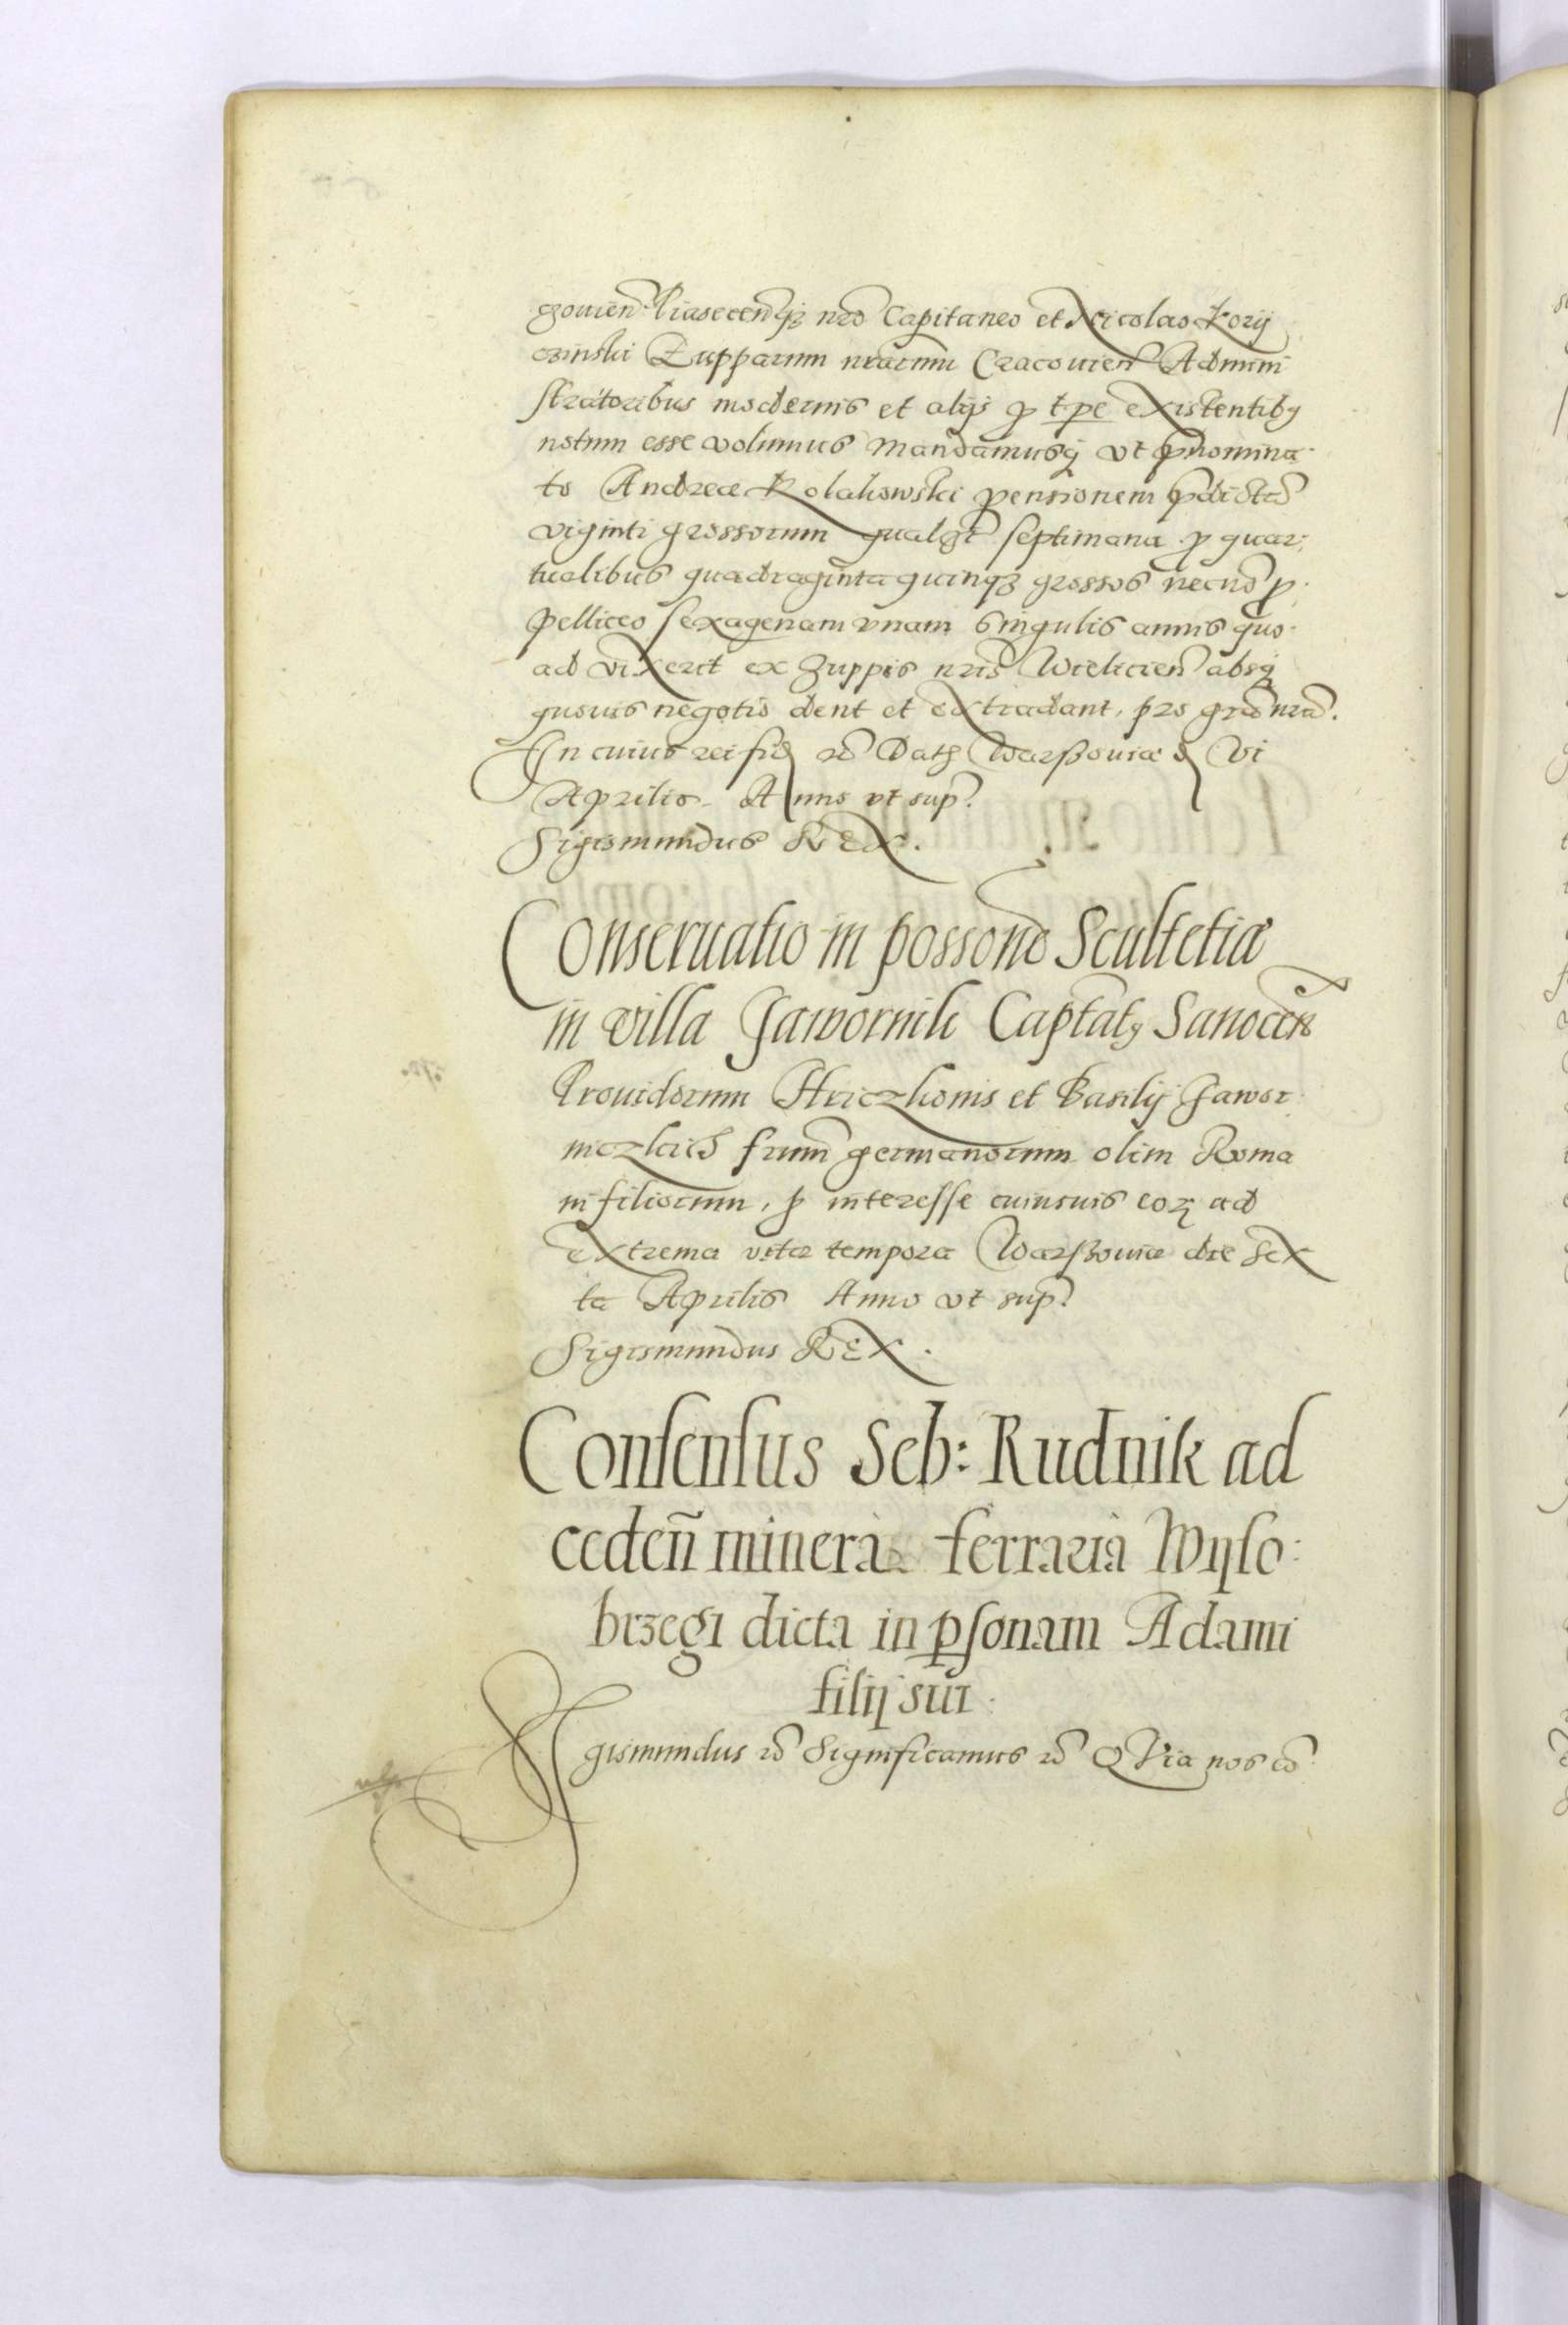 gouien Piasecen͂qꝫ nr̃o Capitaneo et Nicolao Korÿ
czinski Zupparum nr̃arum Cracouien̄ Admini
stratoribus modernis et alijs ꝓ tꝑe existentibꝰ
notum esse volumus mandamusq̃ vt p̃nomina
to Andreae Kolakowski pensionem p̃dictã
viginti grossorum qualꝫt septimana ꝓ quar:
tualibus quadraginta quinqꝫ grossos necnõ ꝓ
pelliceo sexagenam vnam singulis annis quo
ad vixerit ex Zuppis nr̃is Wieliciēn absq̃
quouis negotio dent et extradant, pro gr̃ã nr̃ã.
In cuius rei fid rc̃ Datꝫ Warssouiae d VI
Aprilis Anno vt sup̃.
Sigismundus REX.
Conseruatio in possonẽ Scultetiæ
in villa Jawornik Captãtꝰ Sanocẽn
Prouidorum Hriczkonis et Basilij Jawor
niczkich fr̃um germanorum olim Roma
ni filiorum, ꝑ interesse cuiusuis eoꝝ ad
extrema vitæ tempora Warssouiæ die Sex
ta Aprilis Anno vt sup̃.
Sigismundus REX.
Consensus Seb: Rudnik ad
cedeñ minera ferraria Wyso:
brzegi dicta in ꝑsonam Adami
filij sui.
Sigismundus rc̃ Significamus rc̃ QVia nos cõ